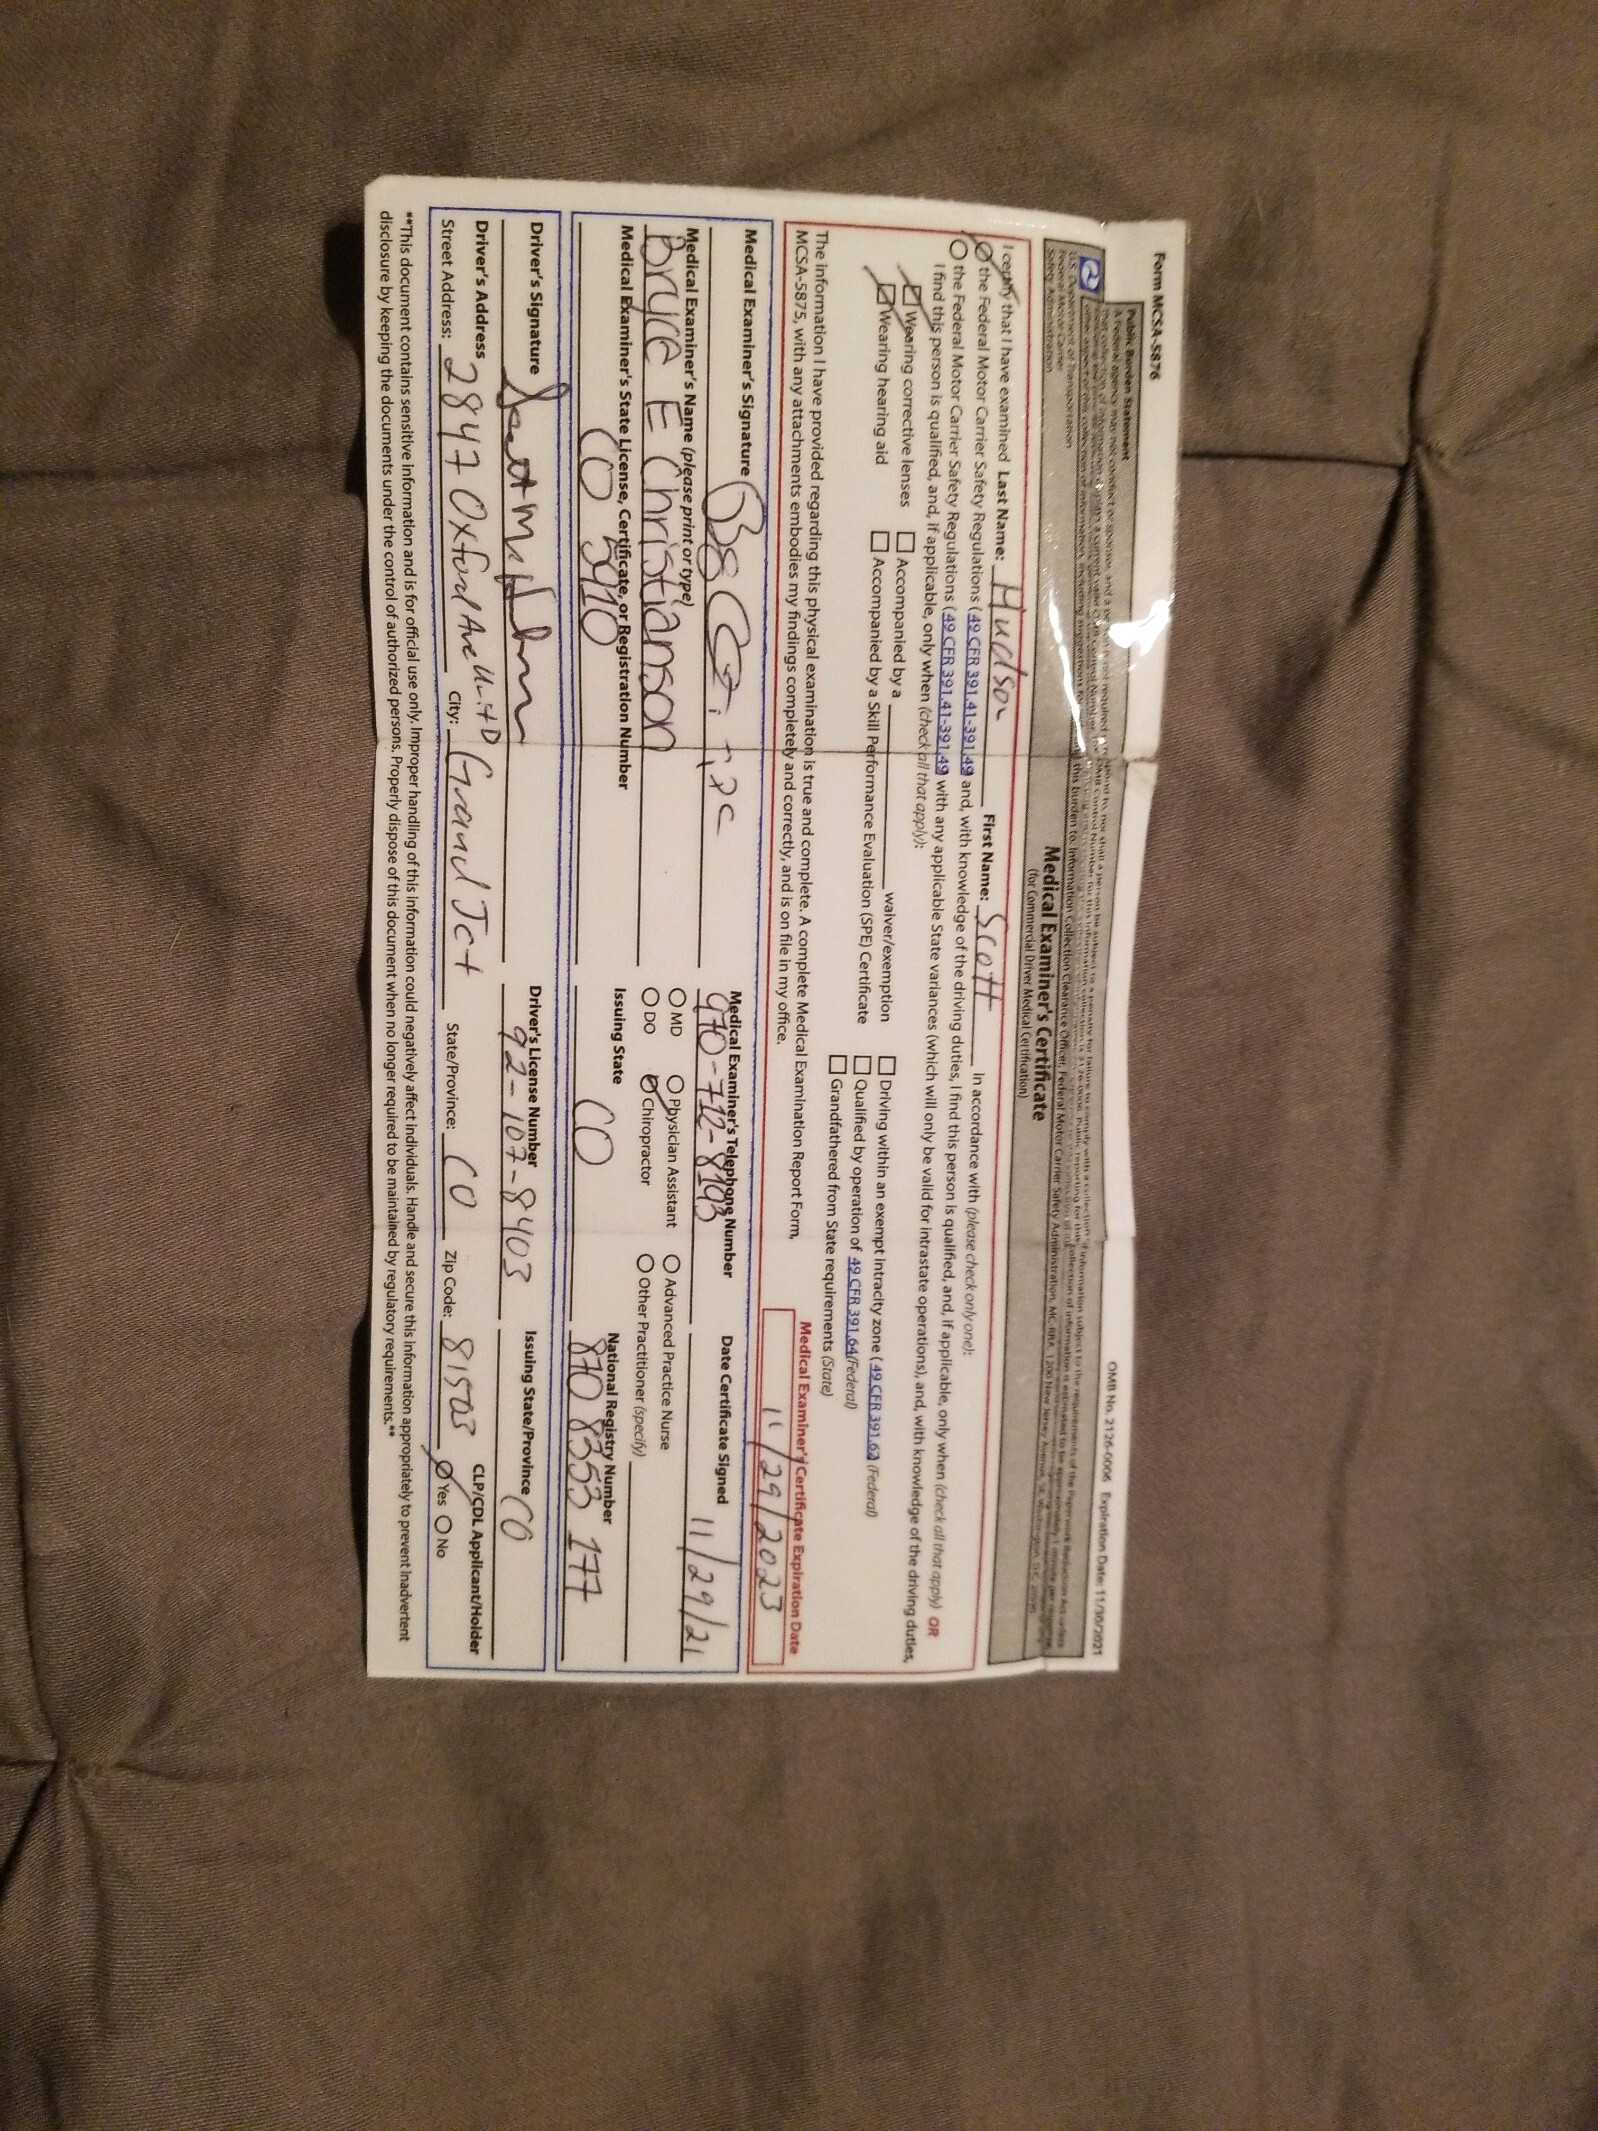 Form MCSA-5876
OMB No. 2126-0006 Expiration Date: 11/30/2021
Public Burden Statement
A Federal agency may not conduct or sponsor, and a person is not required to respond to, nor shall a person be subject to a penalty for failure to comply with a collection of information subject to the requirements of the Paperwork Reduction Act unless
U.S. Department of Transportation
Federal Motor Carrier
Safety Administration
Medical Examiner's Certificate
(for Commercial Driver Medical Certification)
I certify that I have examined Last Name: Hudson First Name: Scott in accordance with (please check only one):
the Federal Motor Carrier Safety Regulations (49 CFR 391.41-391.49) and, with knowledge of the driving duties, I find this person is qualified, and, if applicable, only when (check all that apply) OR
the Federal Motor Carrier Safety Regulations (49 CFR 391.41-391.49) with any applicable State variances (which will only be valid for intrastate operations), and, with knowledge of the driving duties,
I find this person is qualified, and, if applicable, only when (check all that apply):
Wearing corrective lenses Accompanied by a waiver/exemption Driving within an exempt intracity zone (49 CFR 391.62) (Federal)
Wearing hearing aid Accompanied by a Skill Performance Evaluation (SPE) Certificate Qualified by operation of 49 CFR 391.64 (Federal)
Grandfathered from State requirements (State)
The information I have provided regarding this physical examination is true and complete. A complete Medical Examination Report Form,
MCSA-5875, with any attachments embodies my findings completely and correctly, and is on file in my office.
Medical Examiner's Certificate Expiration Date
11/29/2023
Medical Examiner's Signature
Medical Examiner's Telephone Number
970-712-8193
Date Certificate Signed 11/29/21
Medical Examiner's Name (please print or type)
Bryce E Christianson
MD Physician Assistant Advanced Practice Nurse
DO Chiropractor Other Practitioner (specify)
Medical Examiner's State License, Certificate, or Registration Number
CO 5910
Issuing State
CO
National Registry Number
870 8353 177
Driver's Signature
Driver's License Number
92-107-8403
Issuing State/Province CO
Driver's Address
CLP/CDL Applicant/Holder
Street Address: 2847 Oxford Ave Unit D City: Grand Jct State/Province: CO Zip Code: 81503 Yes No
**This document contains sensitive information and is for official use only. Improper handling of this information could negatively affect individuals. Handle and secure this information appropriately to prevent inadvertent
disclosure by keeping the documents under the control of authorized persons. Properly dispose of this document when no longer required to be maintained by regulatory requirements.**